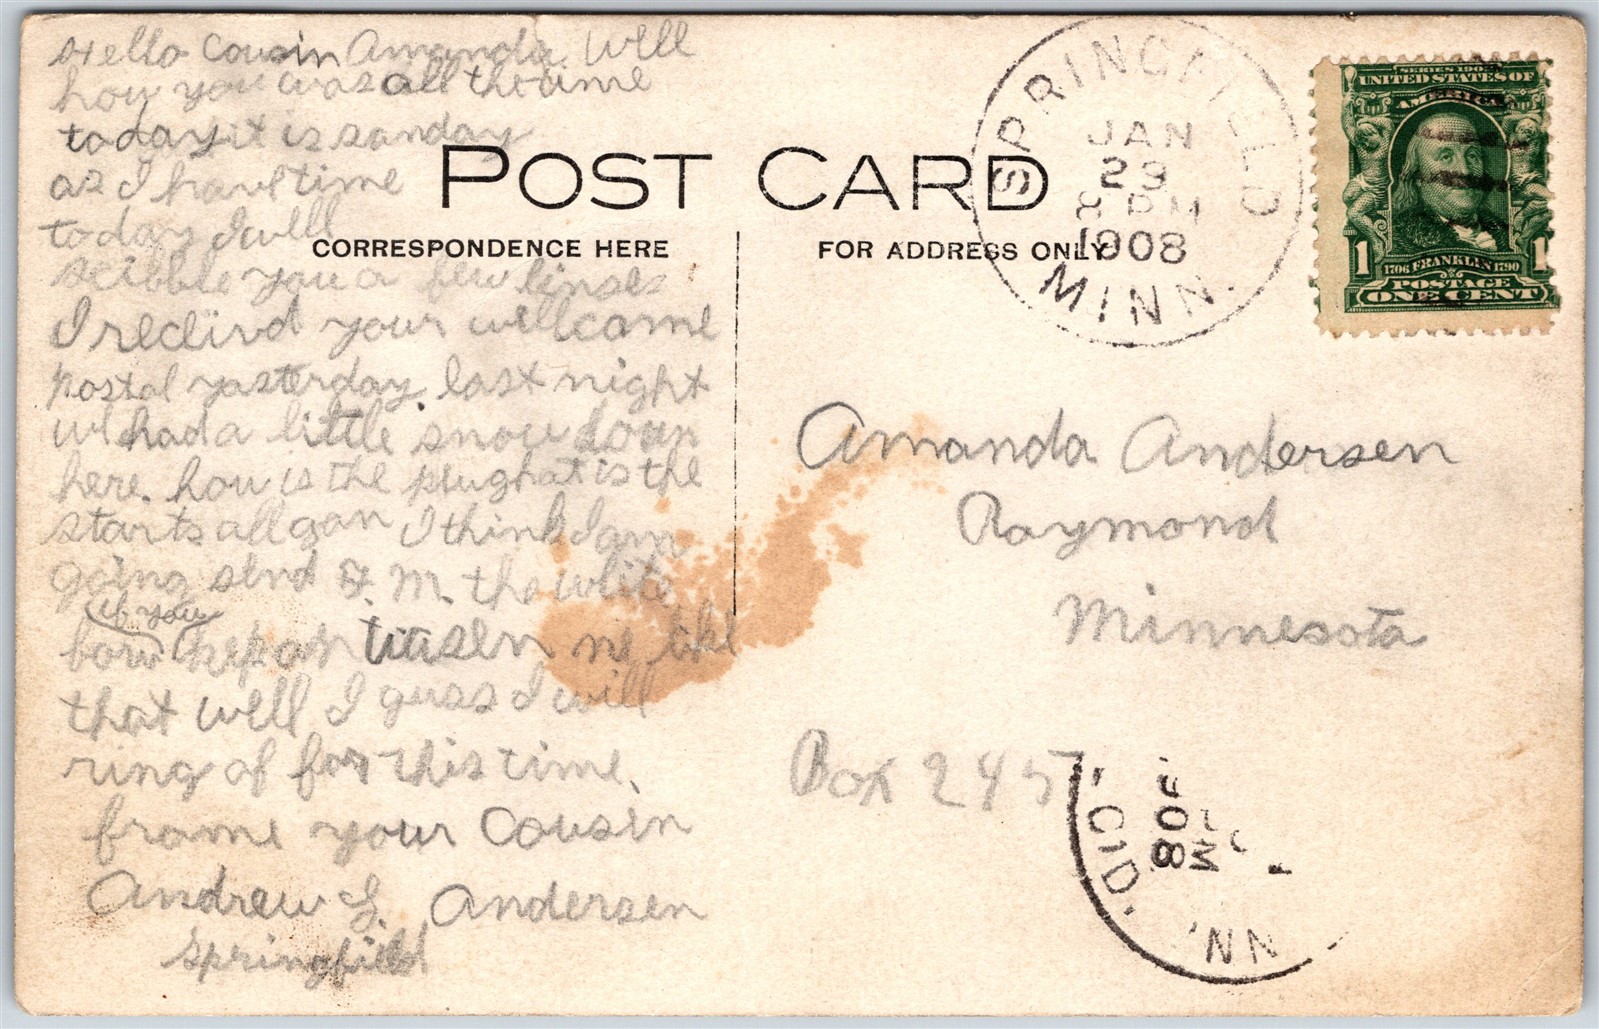 Hello Cousin Amanda. Will
how you was all the time
today it is sanday
as I have time
today I will
scibble you a few linses
I recived your wellcame
postal yasterday. last night
we had a little snow down
here. how is the plug hat is the
starts all gon I think I am
going send F. M. the white
if you
born kep on titisen me like
that well I guess I will
ring of for this time.
frome your Cousin
Andrew G. Andersen
Springfield
POST CARD
CORRESPONDENCE HERE
FOR ADDRESS ONLY
SPRINGFIELD
JAN
23
8 PM
1908
MINN.
SERIES 1902
UNITED STATES OF
AMERICA
1 1706 FRANKLIN 1790 1
POSTAGE
ONE CENT
Amanda Andersen
Raymond
Minnesota
Box 245
CID.
NN.
M
08